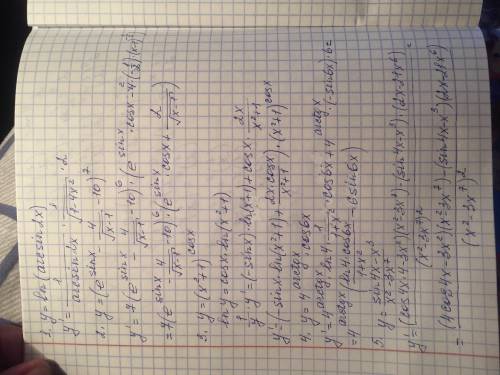 1. y = ln(arcsin 2x)
y' = 1/(arcsin 2x) · 1/√(1-4x²) · 2
2. y = (e^(sin x) - 4/√(x-1) - 10)^7
y' = 7(e^(sin x) - 4/√(x-1) - 10)^6 · (e^(sin x) · cos x - 4 ·
= 7(e^(sin x) - 4/√(x-1) - 10)^6 · (e^(sin x) · cos x +
3. y = (x²+1)^(cos x)
ln y = cos x · ln(x²+1)
1/y · y' = (-sin x) · ln(x²+1) + cos x · 2x/(x²+1)
y' = (-sin x · ln(x²+1) + 2x·cos x/(x²+1)) · (x²+1)^(cos x)
4. y = 4^(arctg x) · cos 6x
y' = 4^(arctg x) · ln 4 · 1/(1+x²) · cos 6x + 4^(arctg x) · (-sin 6x) · 6 =
= 4^(arctg x) (ln 4 · cos 6x/(1+x²) - 6 sin 6x)
5. y = (sin 4x - x³)/(x² - 3x⁷)
y' = ((cos 4x · 4 - 3x²)(x² - 3x⁷) - (sin 4x - x³) · (2x - 21x⁶))/(x² - 3x⁷)² =
= ((4 cos 4x - 3x²)(x² - 3x⁷) - (sin 4x - x³)(2x - 21x⁶))/(x² - 3x⁷)²